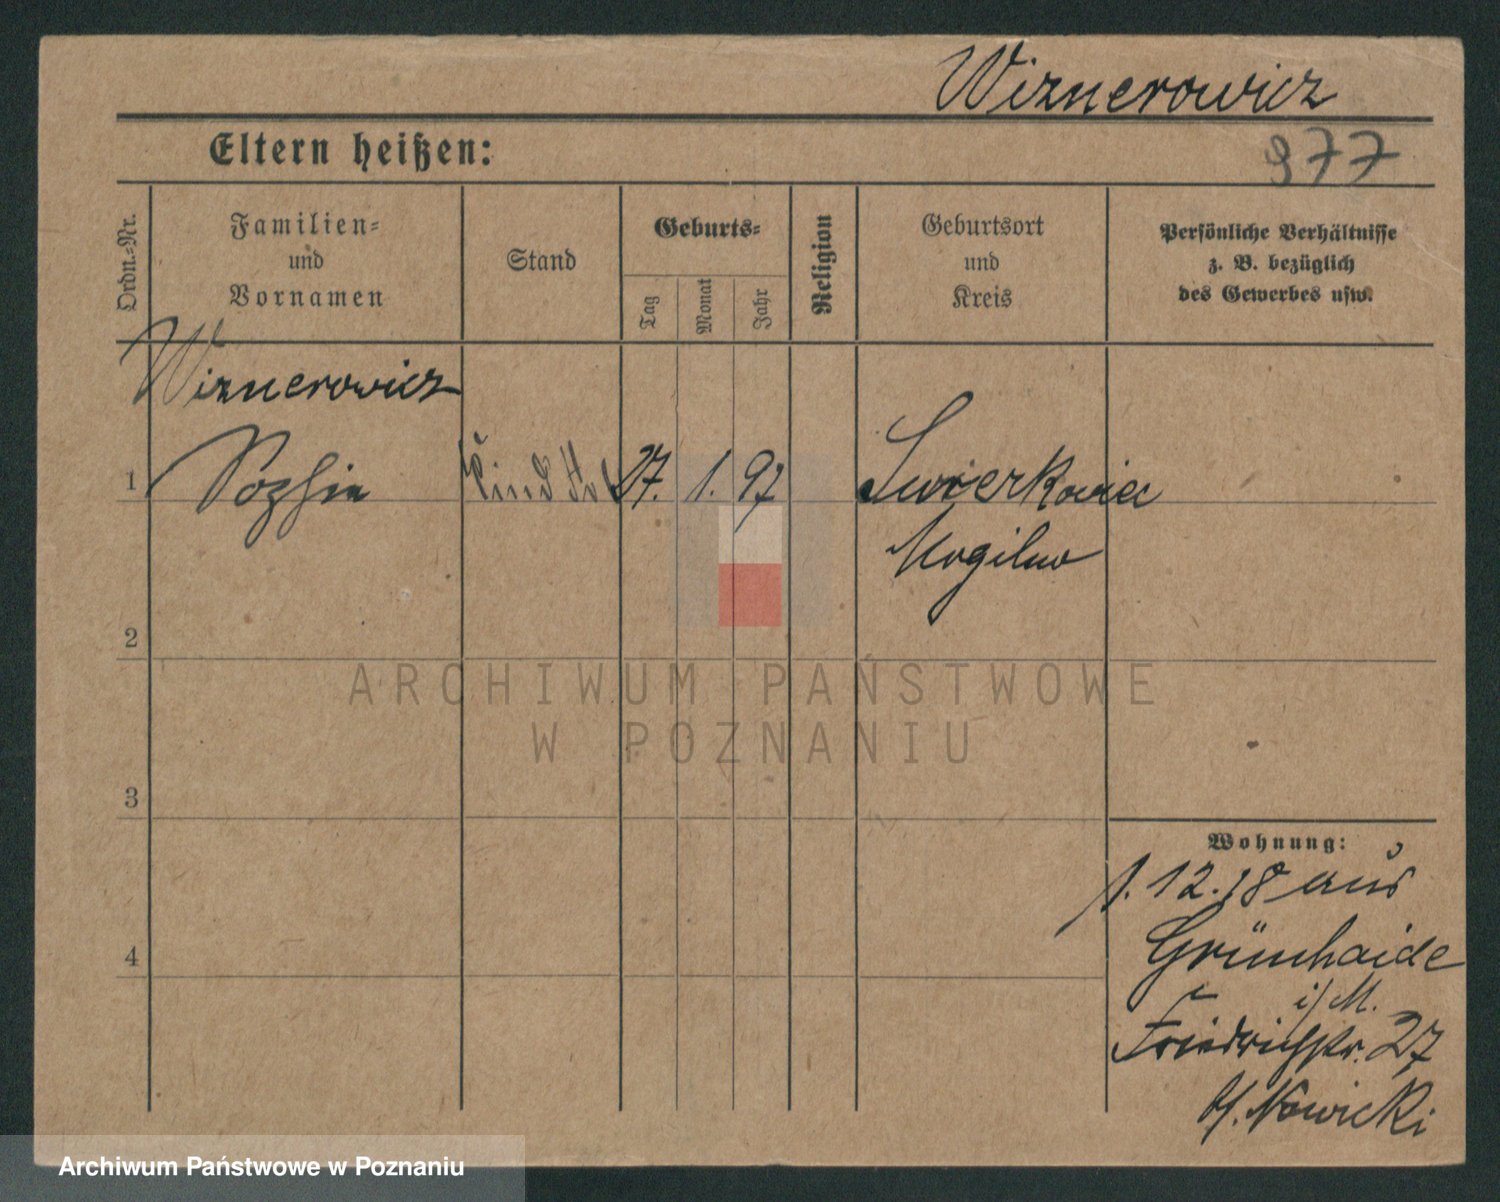 Wiznerowicz
Eltern heißen:
977
Ordn.-Nr.
Familien-
und
Vornamen
Stand
Geburts-
Tag
Monat
Jahr
Religion
Geburtsort
und
Kreis
Persönliche Verhältnisse
z. B. bezüglich
des Gewerbes usw.
Wiznerowicz
1
Sophie
27. 1. 97
Swierkowiec
Mogilno
2
3
4
Wohnung:
1. 12. 18 aus
Grünhaide
i/M.
Friedrichstr. 27
b/. Nowicki
ARCHIWUM PAŃSTWOWE
W POZNANIU
Archiwum Państwowe w Poznaniu